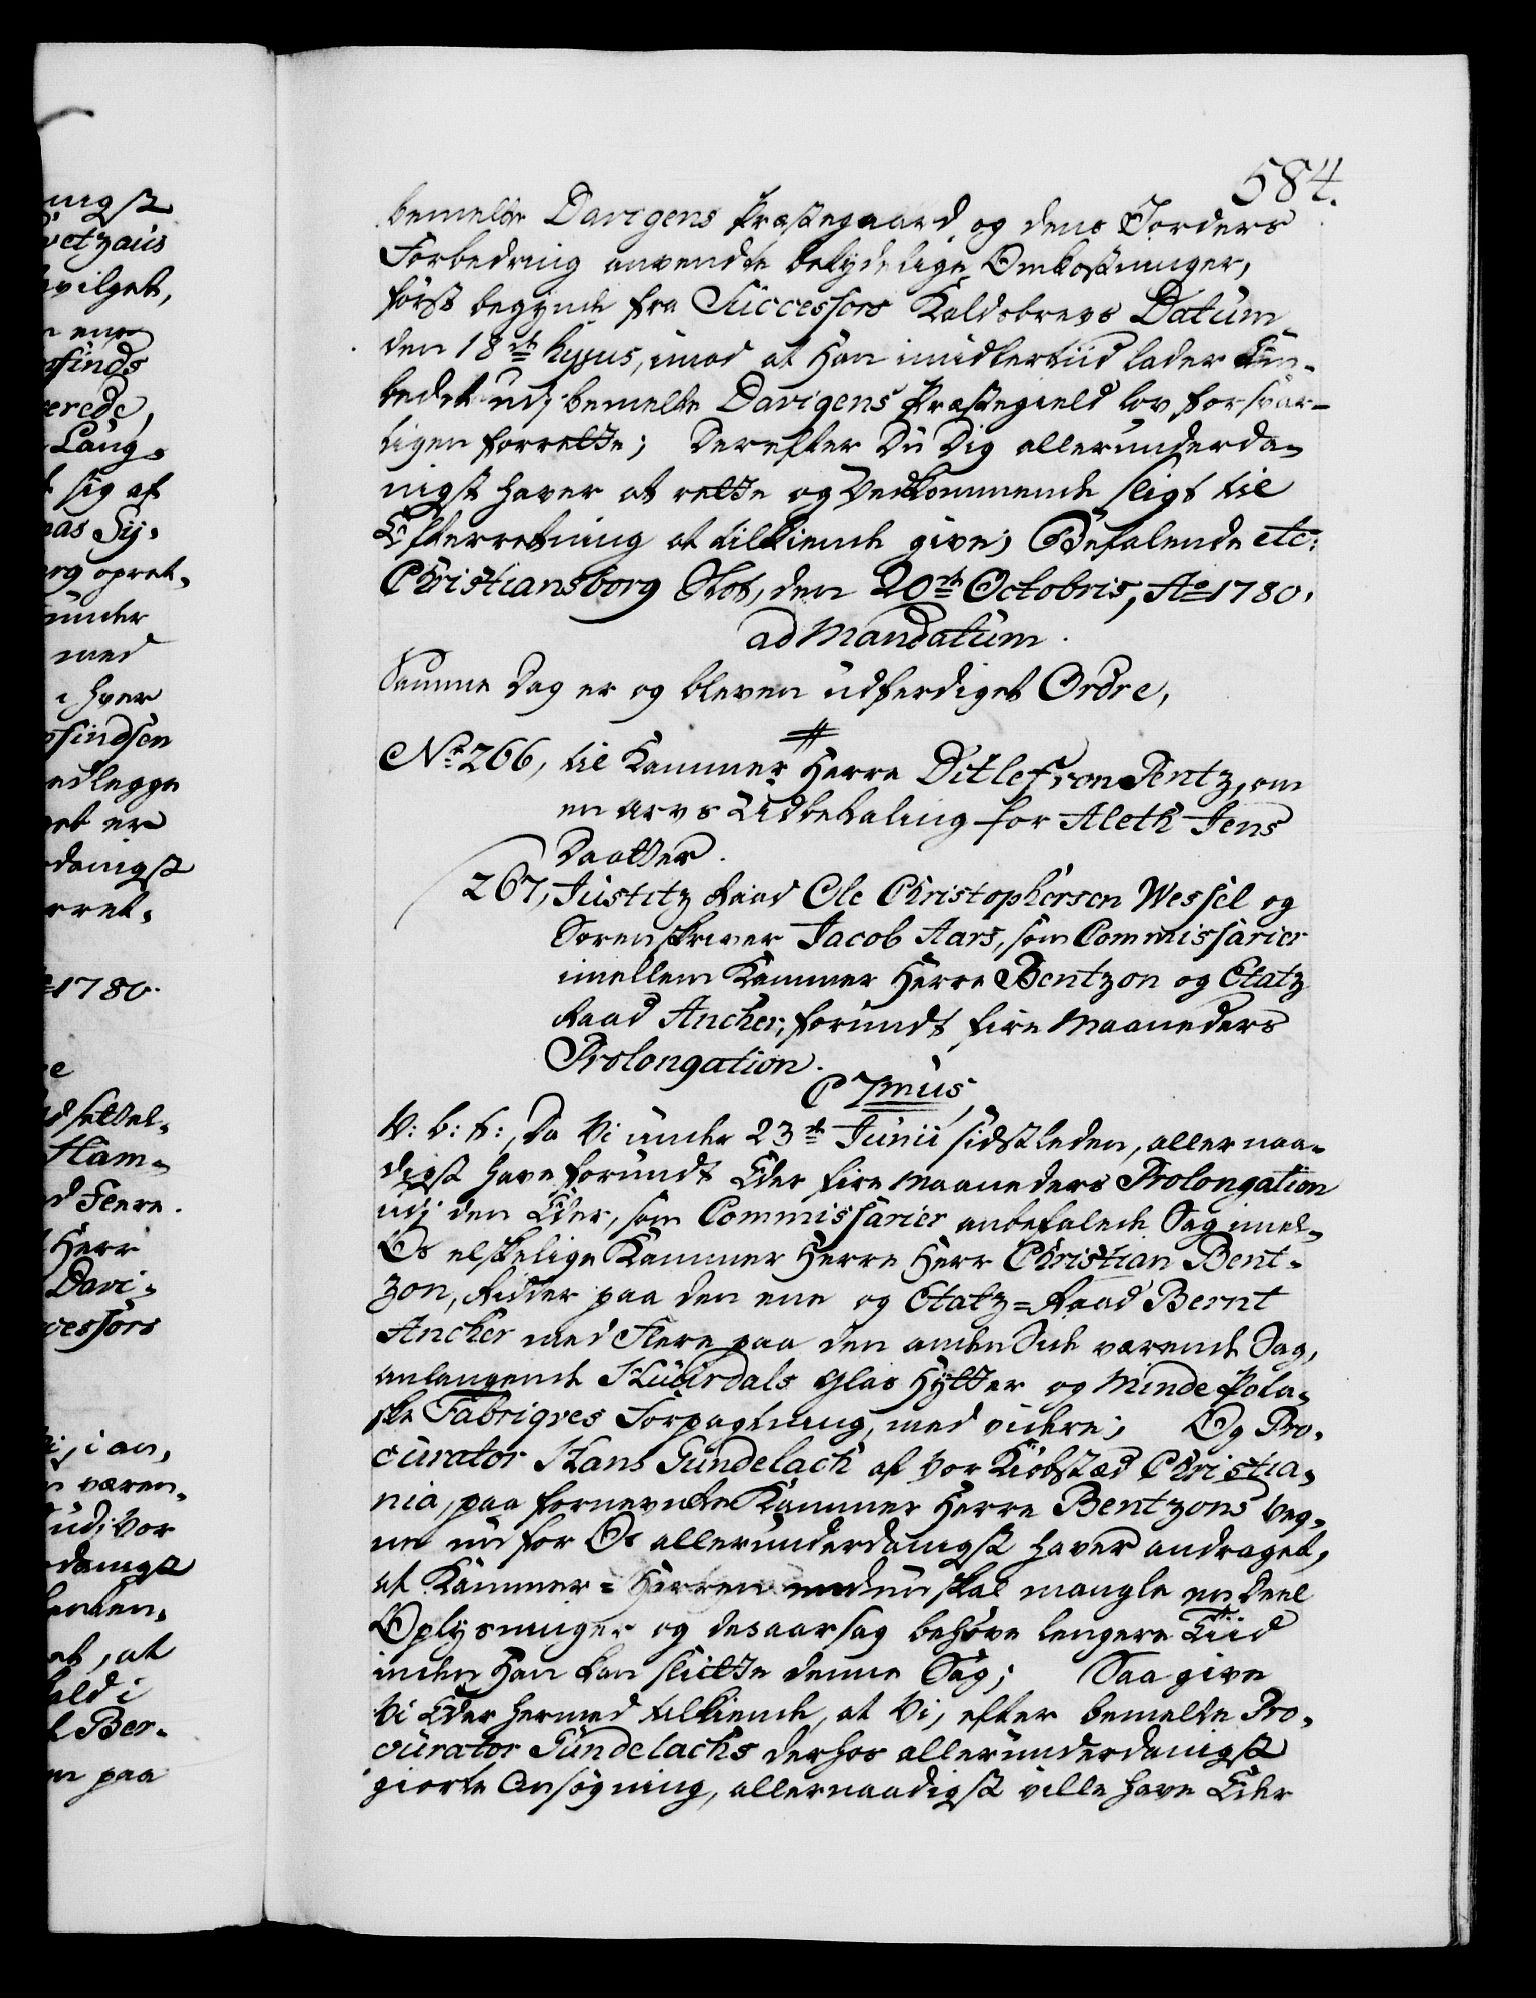 584.
bemelte Davigens Præstegaard og dens Jorders
Forbedring anvendte betydelige Omkostninger,
först begynde fra Successors Kaldsbrevs Datum
den 18de hujus, imod at Han imidlertiid lader Em-
bedet udj bemelte Davigens Præstegield lovforsvar-
ligen forrette; Derefter Du Dig allerunderda-
nigst haver at rette og Vedkommende sligt til
Efterretning at tilkiende give; Befalende etc:
Christiansborg Slot, den 20de Octobris, Ao 1780.
ad Mandatum.
Samme Dag er og bleven udferdiget Ordre,
No 266, til Kammer Herre Ditlef von Pentz, om
en Arvs Udbetaling for Aleth Jens
Daatter.
267, Justitz Raad Ole Christophersen Wessel og
Sorenskriver Jacob Aars, som Commissarier
imellem Kammer Herre Bentzon og Etatz
Raad Ancher, forundt fire Maaneders
Prolongation.
C 7mus
V: b: t:, Da Vi under 23de Junii sidstleden, allernaa-
digst have forundt Eder fire Maaneders Prolongation
udj den Eder, som Commissarier anbefalede Sag imel-
Os elskelige Kammer Herre Herr Christian Bent-
zon, Ridder paa den ene og Etatz=Raad Bernt
Ancher med Flere paa den anden Side værende Sag,
anlangende Hurdals Glas Hytter og Minde Pota-
ske Fabriqves Forpagtning, med videre; Og Pro-
curator Hans Gundelach af Vor Kiöbstæd Christia-
nia, paa fornevnte Kammer Herre Bentzons Veg-
ne nu for Os allerunderdanigst haver andraget,
at Kammer=Herren endnu skal mangle en Deel
Oplysninger og desaarsag behöve lengere Tiid
inden Han kan slutte denne Sag; Saa give
Vi Eder hermed tilkiende, at Vi, efter bemelte Pro-
curator Gundelachs derhos allerunderdanigst
giorte Ansögning, allernaadigst ville have Eder